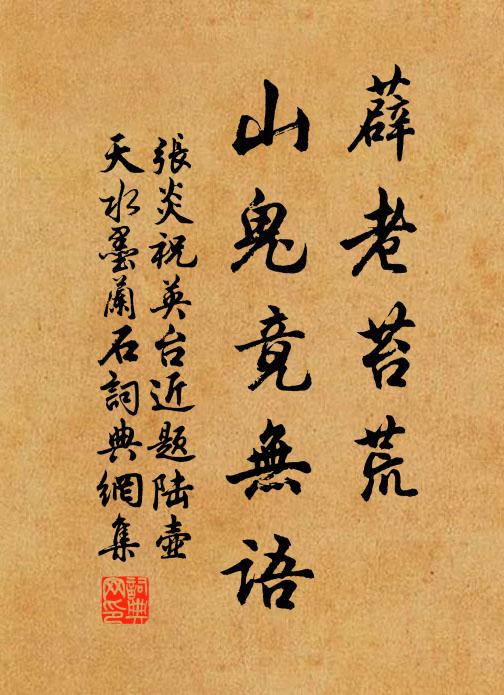 薜老苔荒
山鬼竟無語
張炎祝英台近題陸壺
天水墨蘭石詞典網集
詞典網印